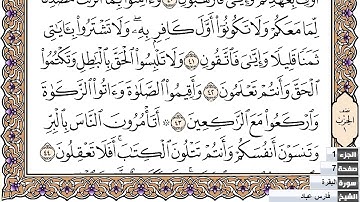 لِّمَا مَعَكُمْ وَلَا تَكُونُوٓا۟ أَوَّلَ كَافِرٍۭ بِهِۦ ۖ وَلَا تَشْتَرُوا۟ بِـَٔايَـٰتِى
ثَمَنًا قَلِيلًا وَإِيَّـٰىَ فَٱتَّقُونِ ٤١ وَلَا تَلْبِسُوا۟ ٱلْحَقَّ بِٱلْبَـٰطِلِ وَتَكْتُمُوا۟
ٱلْحَقَّ وَأَنتُمْ تَعْلَمُونَ ٤٢ وَأَقِيمُوا۟ ٱلصَّلَوٰةَ وَءَاتُوا۟ ٱلزَّكَوٰةَ
وَٱرْكَعُوا۟ مَعَ ٱلرَّٰكِعِينَ ٤٣ ۞ أَتَأْمُرُونَ ٱلنَّاسَ بِٱلْبِرِّ
وَتَنسَوْنَ أَنفُسَكُمْ وَأَنتُمْ تَتْلُونَ ٱلْكِتَـٰبَ ۚ أَفَلَا تَعْقِلُونَ ٤٤
الجزء 1
صفحة 7
سورة البقرة
الشيخ فارس عباد